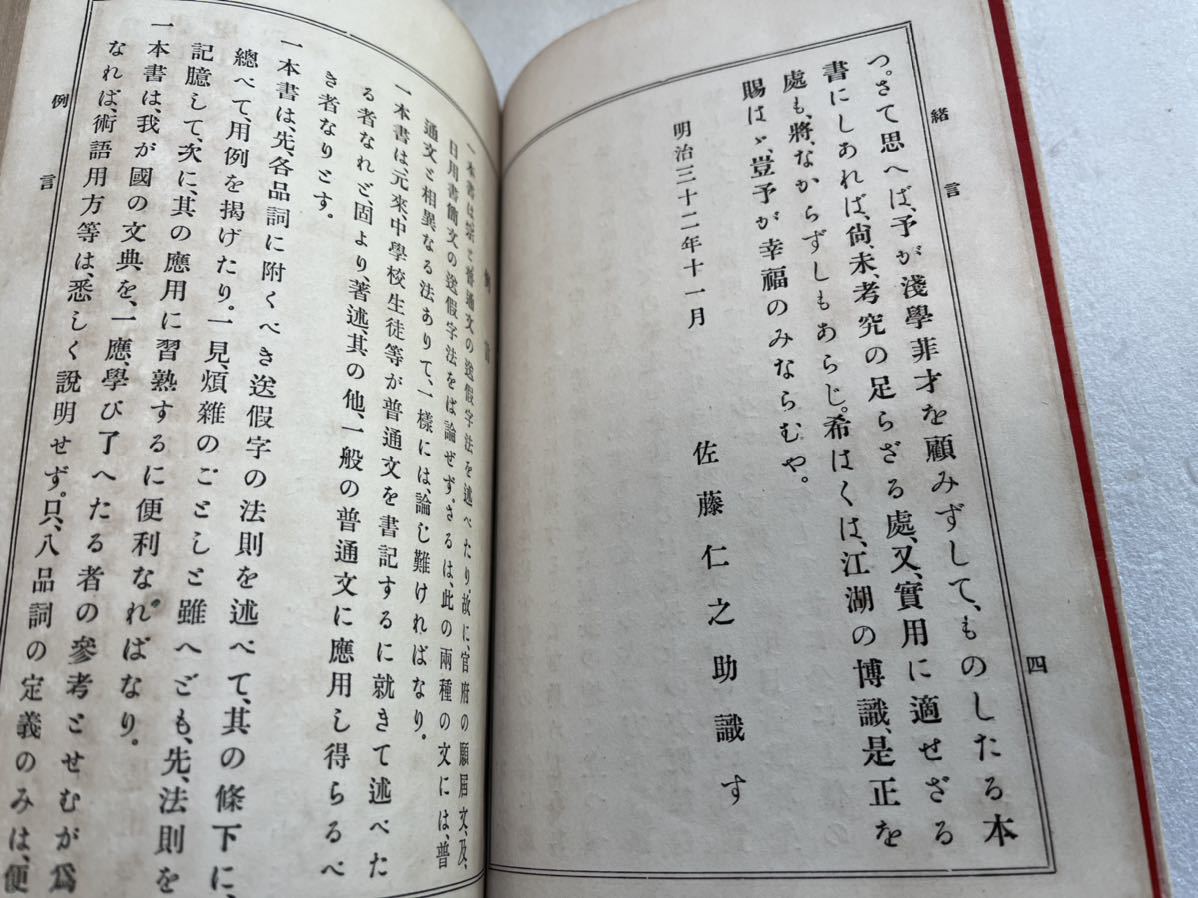 緒言
四
つ。さて思へば、予が淺學非才を顧みずして、ものしたる本
書にしあれば、尙、未、考究の足らざる處、又、實用に適せざる
處も、將、なからずしもあらじ。希はくは、江湖の博識、是正を
賜はゞ、豈予が幸福のみならむや。
明治三十二年十一月
佐藤仁之助識す
例言
一本書は、專ら普通文の送假字法を述べたり、故に、官府の願屆文、及、
日用書簡文の送假字法をば論ぜず。さるは、此の兩種の文には、普
通文と相異なる法ありて、一樣には論じ難ければなり。
一本書は、元來、中學校生徒等が普通文を書記するに就きて述べた
る者なれど、固より、著述、其の他、一般の普通文に應用し得らるべ
き者なりとす。
一本書は、先、各品詞に附くべき送假字の法則を述べて、其の條下に、
總べて、用例を揭げたり。一見、煩雜のごとしと雖へども、先、法則を
記臆して、次に、其の應用に習熟するに便利なればなり。
一本書は、我が國の文典を、一應、學び了へたる者の參考とせむが爲
なれば、術語用方等は、悉しく說明せず。只、八品詞の定義のみは、便
例言